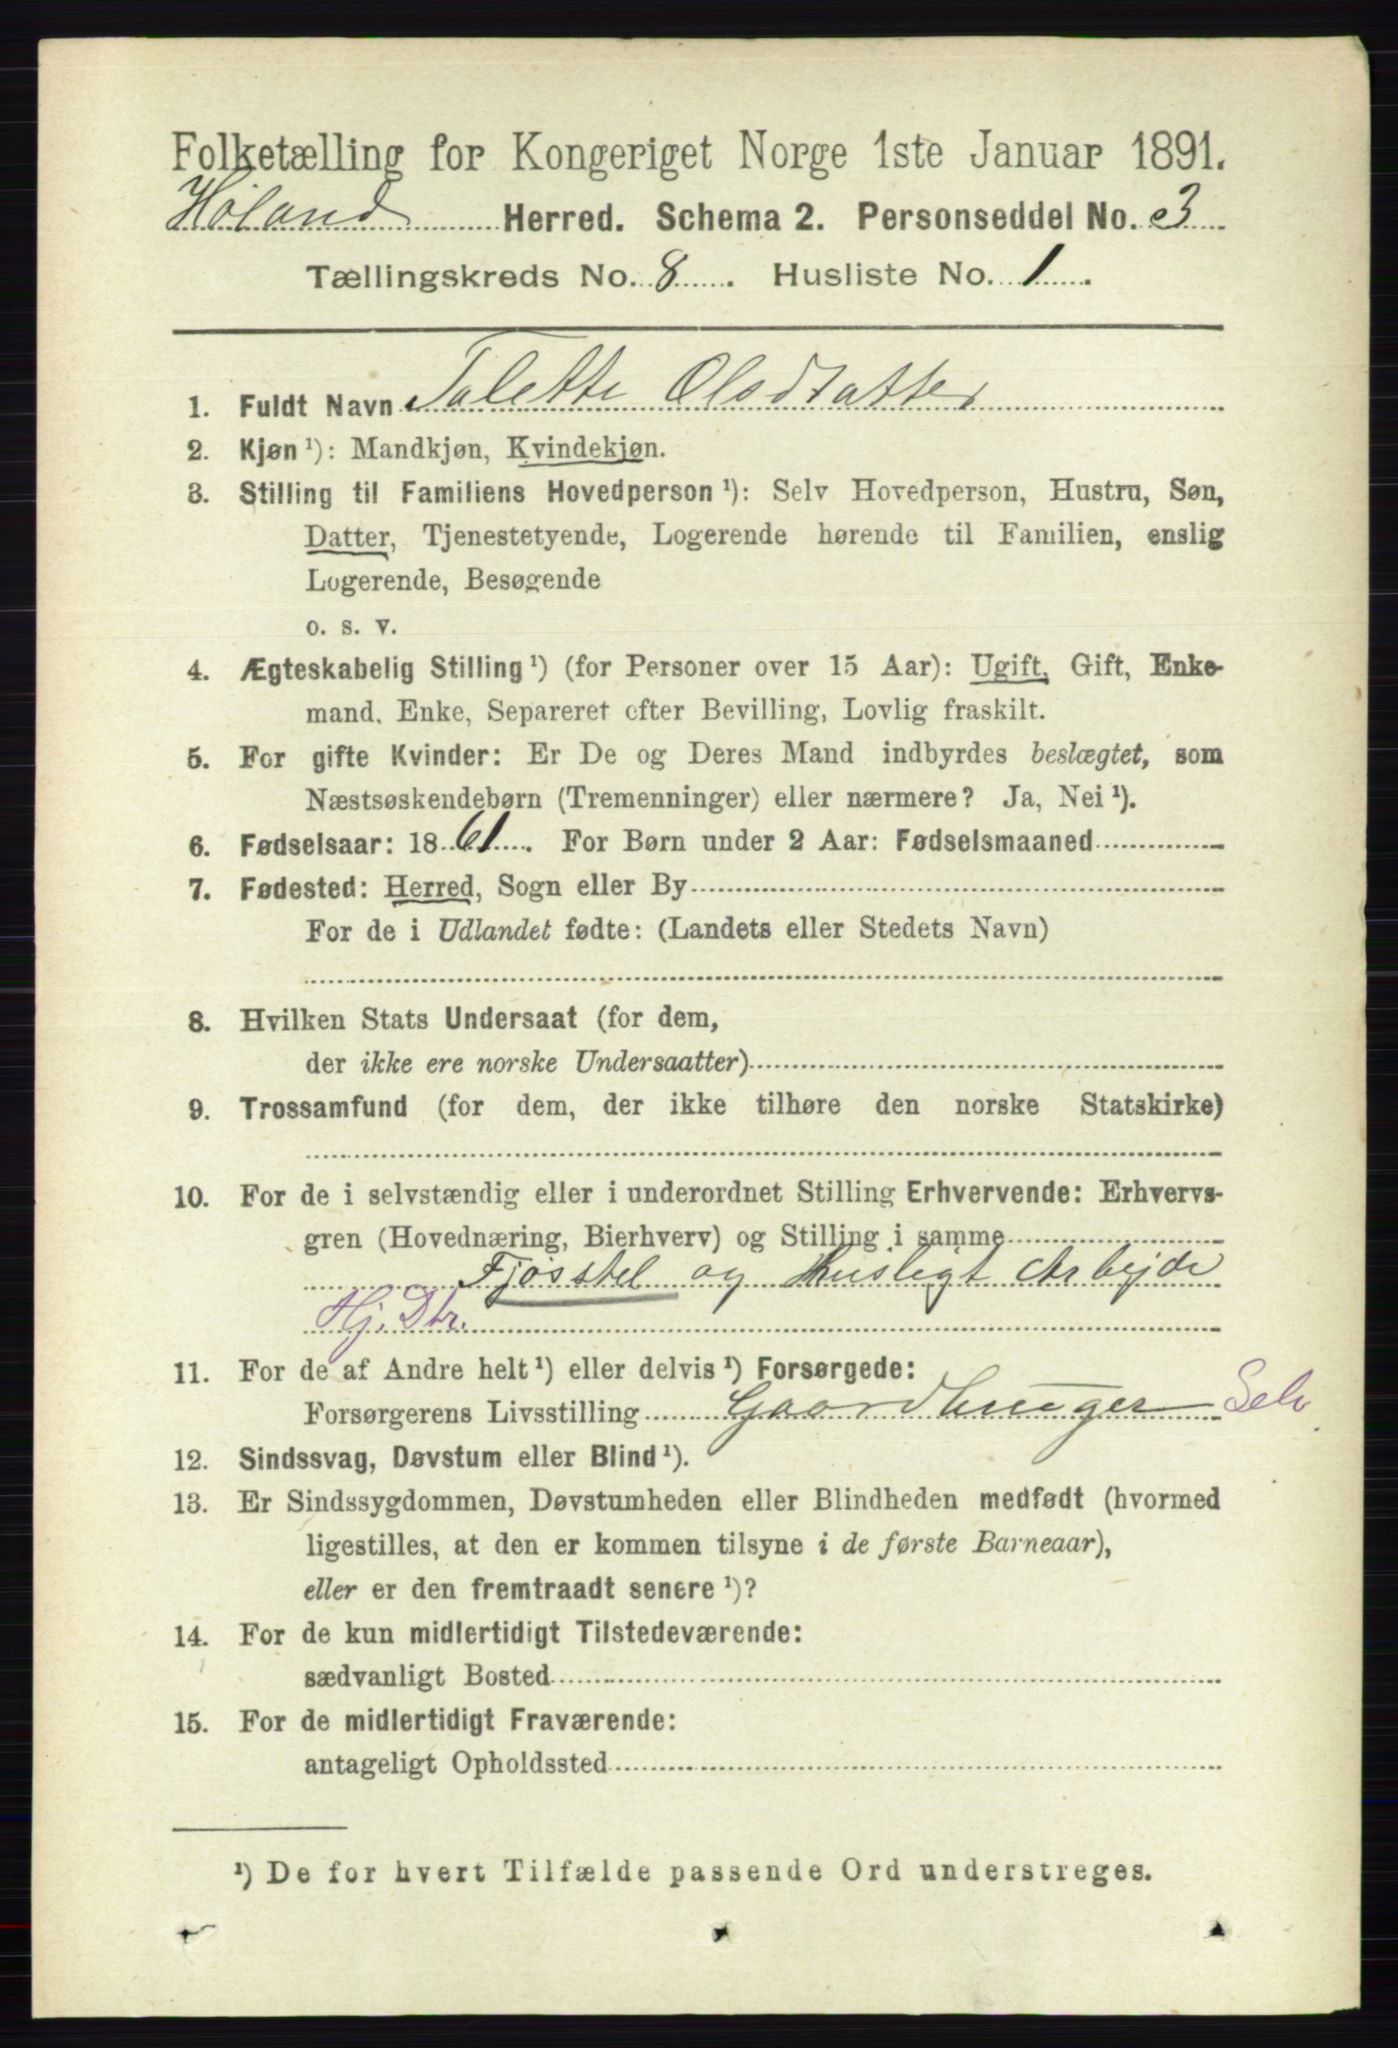 Folketælling for Kongeriget Norge 1ste Januar 1891.
Høland Herred. Schema 2. Personseddel No. 3
Tællingskreds No. 8. Husliste No. 1.
1. Fuldt Navn Talette Olsdatter
2. Kjøn ¹): Mandkjøn, Kvindekjøn.
3. Stilling til Familiens Hovedperson ¹): Selv Hovedperson, Hustru, Søn,
Datter, Tjenestetyende, Logerende hørende til Familien, enslig
Logerende, Besøgende
o. s. v.
4. Ægteskabelig Stilling ¹) (for Personer over 15 Aar): Ugift, Gift, Enke-
mand, Enke, Separeret efter Bevilling, Lovlig fraskilt.
5. For gifte Kvinder: Er De og Deres Mand indbyrdes beslægtet, som
Næstsøskendebørn (Tremenninger) eller nærmere? Ja, Nei ¹).
6. Fødselsaar: 1861. For Børn under 2 Aar: Fødselsmaaned
7. Fødested: Herred, Sogn eller By
For de i Udlandet fødte: (Landets eller Stedets Navn)
8. Hvilken Stats Undersaat (for dem,
der ikke ere norske Undersaatter)
9. Trossamfund (for dem, der ikke tilhøre den norske Statskirke)
10. For de i selvstændig eller i underordnet Stilling Erhvervende: Erhvervs-
gren (Hovednæring, Bierhverv) og Stilling i samme
Fjøsstel og Husligt Arbejde
Hj. Dtr.
11. For de af Andre helt ¹) eller delvis ¹) Forsørgede:
Forsørgerens Livsstilling Gaardbruger Selv
12. Sindssvag, Døvstum eller Blind ¹).
13. Er Sindssygdommen, Døvstumheden eller Blindheden medfødt (hvormed
ligestilles, at den er kommen tilsyne i de første Barneaar),
eller er den fremtraadt senere ¹)?
14. For de kun midlertidigt Tilstedeværende:
sædvanligt Bosted
15. For de midlertidigt Fraværende:
antageligt Opholdssted
¹) De for hvert Tilfælde passende Ord understreges.